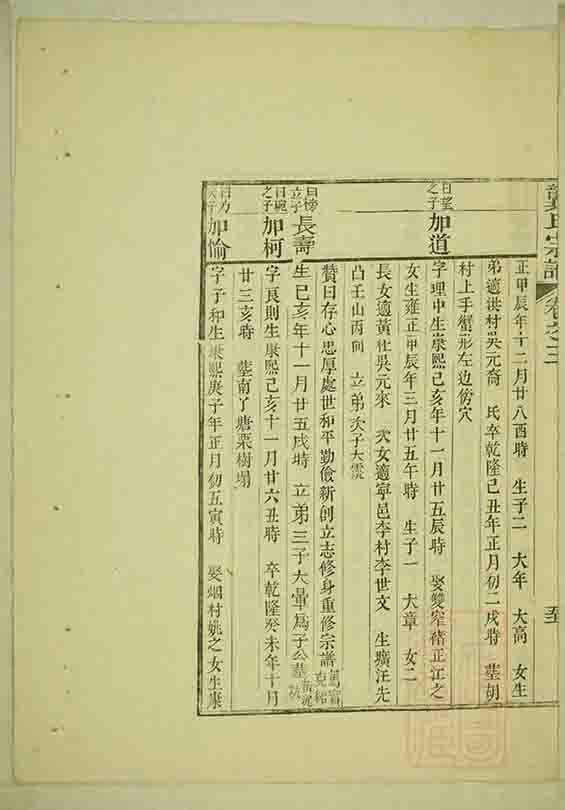 龔氏宗譜 卷之三
正甲辰年十二月廿八酉時 生子二 大年 大高 女生
弟適洪村吳元裔 氏卒乾隆己丑年正月初二戌時 塟胡
村上手蟹形左边傍穴
曰望之子 加道 字理中生康熙己亥年十一月廿五辰時 娶雙窄豬正江之
女生雍正甲辰年三月廿五午時 生子一 大章 女二
長女適黃杜吳元來 次女適寧邑李村李世文 生壙汪先
凸壬山丙向 立弟次子大震
贊曰存心忠厚處世和平勤儉新創立志修身重修宗譜
曰榜立子 長壽 生己亥年十一月廿五戌時 立弟三子大畢爲子公墓
曰琬之子 加柯 字良則生康熙己亥十一月廿六丑時 卒乾隆癸未年十月
廿三亥時 塟南了塘栗樹塌
加愉 字子和生康熙庚子年正月初五寅時 娶烟村姚之女生康